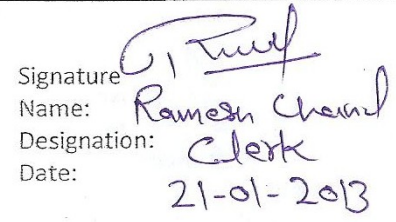 Signature
Name: Ramesh Chand
Designation: Clerk
Date: 21-01-2013